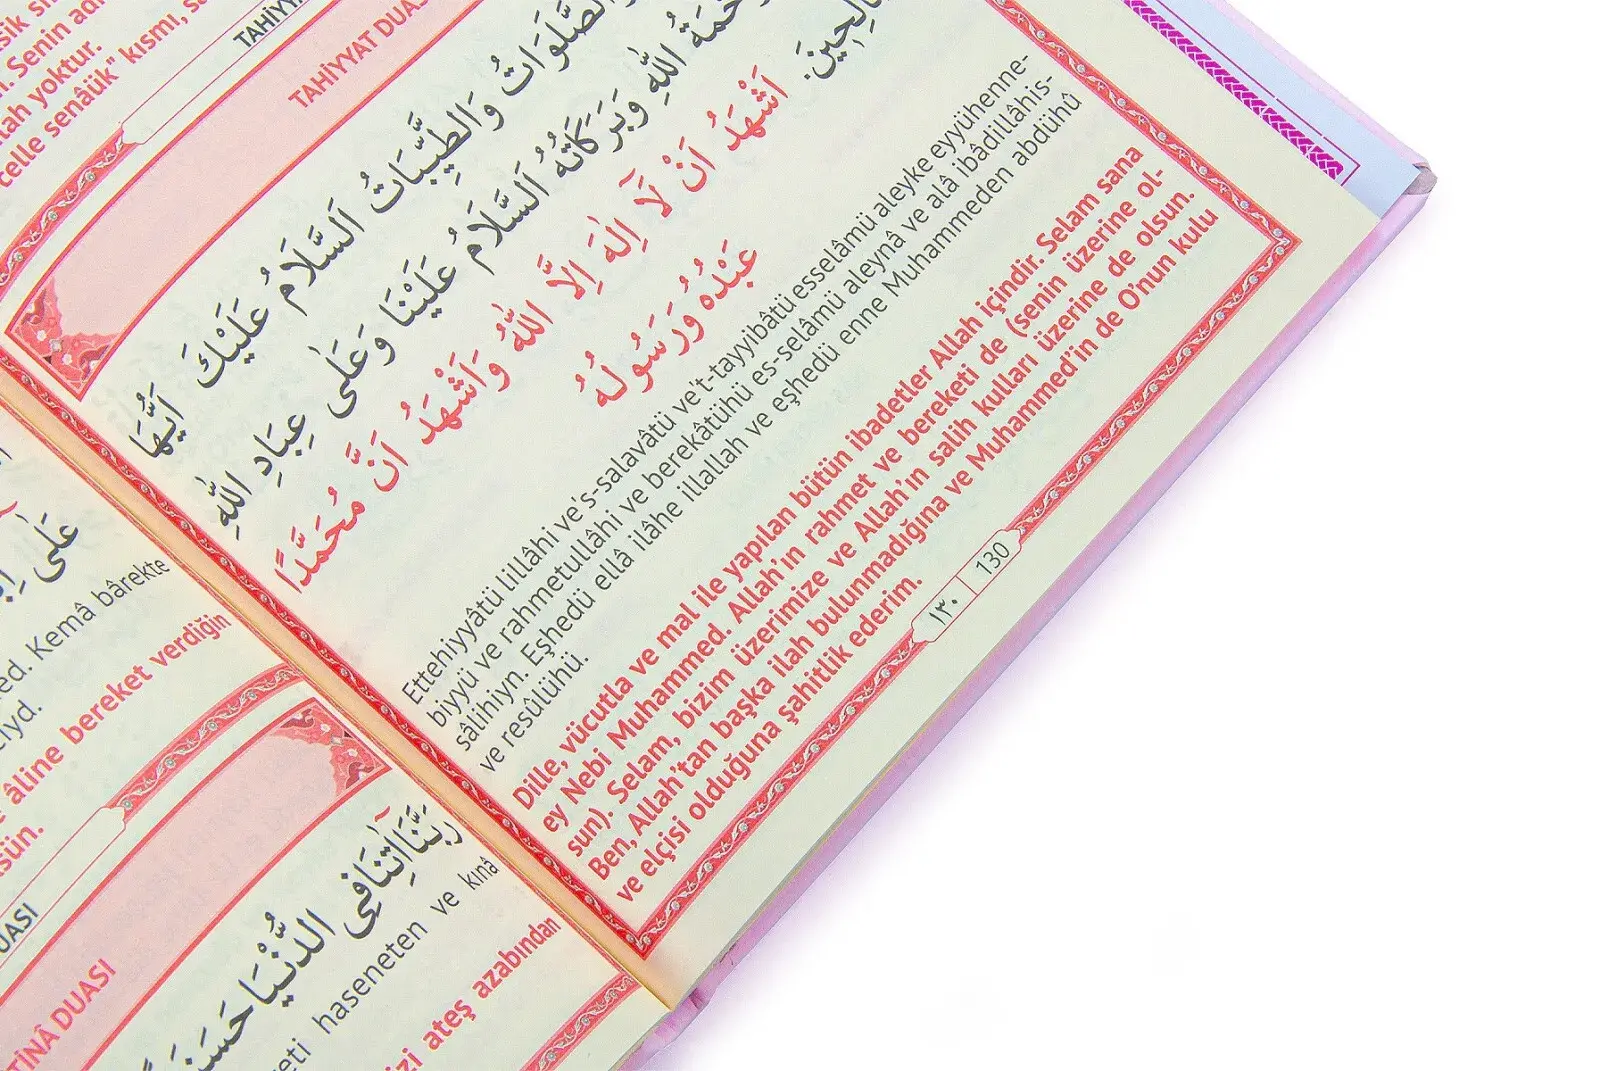 celle senâük" kısmı,
lah yoktur.
Senin
TAHİYYAT
وَالصَّلَوَاتُ وَالطَّيِّبَاتُ اَلسَّلَامُ عَلَيْكَ اَيُّهَا
وَرَحْمَةُ اللّٰهِ وَبَرَكَاتُهُ اَلسَّلَامُ عَلَيْنَا وَعَلٰى عِبَادِ اللّٰهِ
اَشْهَدُ اَنْ لَٓا اِلٰهَ اِلَّا اللّٰهُ وَاَشْهَدُ اَنَّ مُحَمَّدًا
عَبْدُهُ وَرَسُولُهُ
Ettehiyyâtü lillâhi ve's-salavâtü ve't-tayyibâtü esselâmü aleyke eyyühenne-
biyyü ve rahmetullâhi ve berekâtühü es-selâmü aleynâ ve alâ ibâdillâhis-
sâlihiyn. Eşhedü ellâ ilâhe illallah ve eşhedü enne Muhammeden abdühû
ve resûlühü.
Dille, vücutla ve mal ile yapılan bütün ibadetler Allah içindir. Selam sana
ey Nebi Muhammed. Allah'ın rahmet ve bereketi de (senin üzerine ol-
sun). Selam, bizim üzerimize ve Allah'ın salih kulları üzerine de olsun.
Ben, Allah'tan başka ilah bulunmadığına ve Muhammed'in de O'nun kulu
ve elçisi olduğuna şahitlik ederim.
١٣٠ 130
عَلٰى
Kemâ bârekte
âline bereket verdiğin
DUASI
رَبَّنَٓا اٰتِنَا فِي الدُّنْيَا
haseneten ve kınâ
ateş azabından